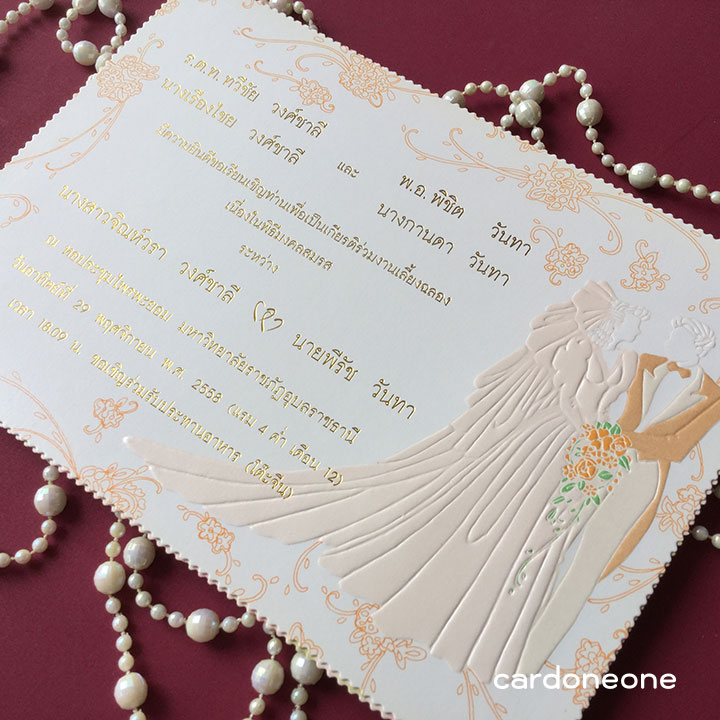 ร.ต.ท. ทวีชัย วงศ์ชาลี
นางเรืองไชย วงศ์ชาลี
และ
พ.อ. พิชิต วันทา
นางกานดา วันทา
มีความยินดีขอเรียนเชิญท่านเพื่อเป็นเกียรติร่วมงานเลี้ยงฉลอง
เนื่องในพิธีมงคลสมรส
ระหว่าง
นางสาวจิณห์วรา วงศ์ชาลี นายพีรัช วันทา
ณ หอประชุมไพรพะยอม มหาวิทยาลัยราชภัฏอุบลราชธานี
วันอาทิตย์ที่ 29 พฤศจิกายน พ.ศ. 2558 (แรม 4 ค่ำ เดือน 12)
เวลา 18.09 น. ขอเชิญร่วมรับประทานอาหาร (โต๊ะจีน)
cardoneone